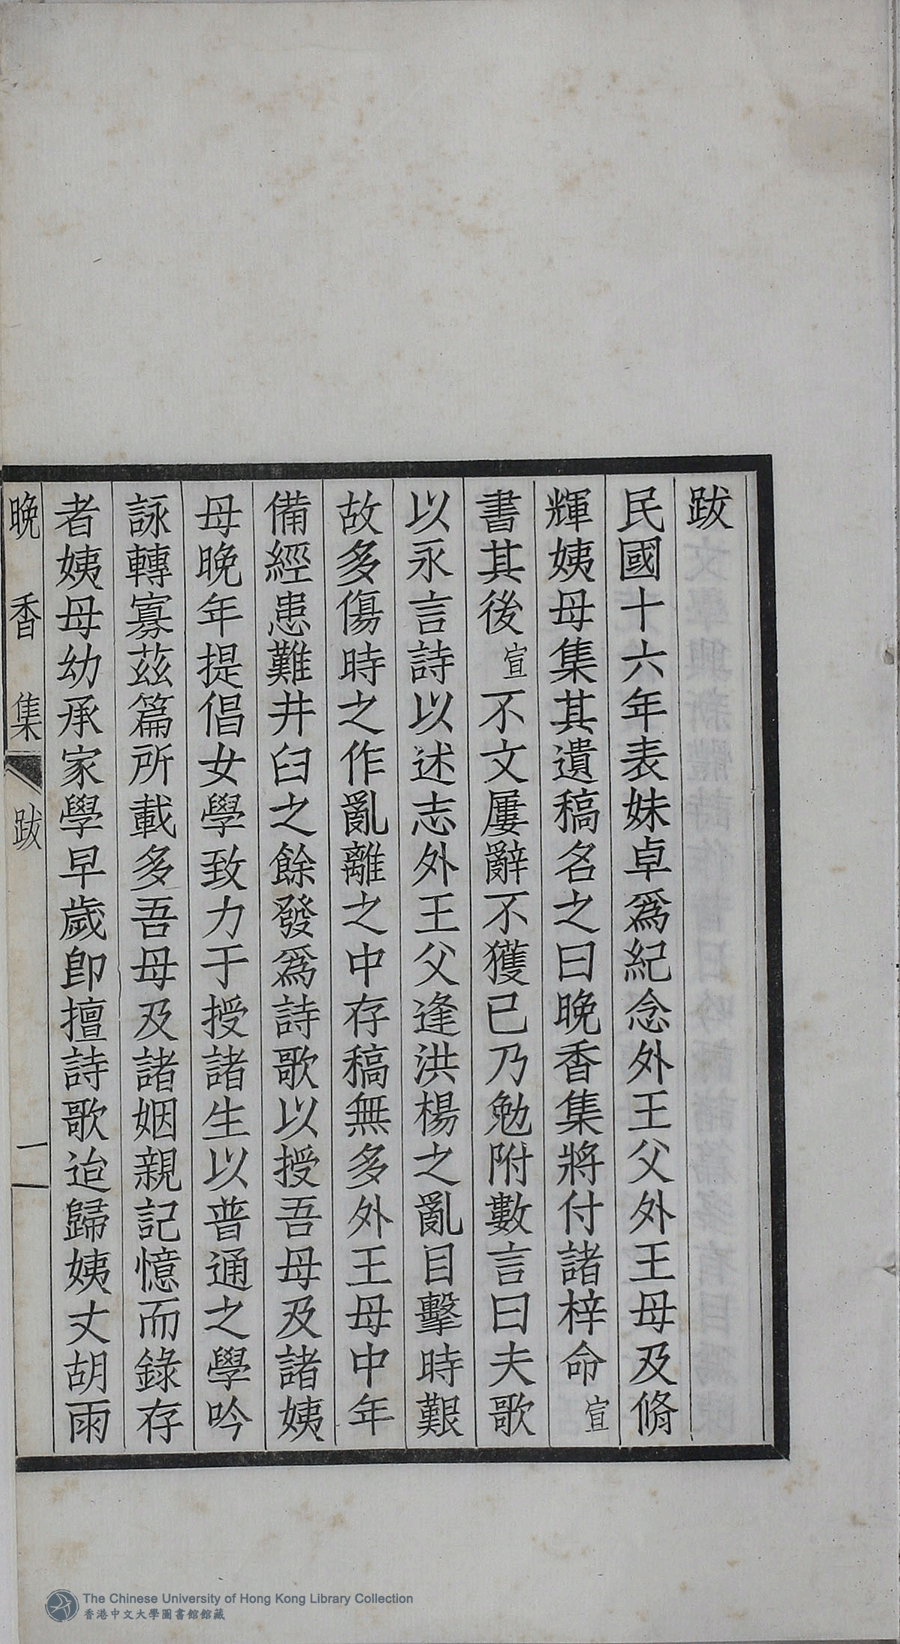 跋
民國十六年表妹卓爲紀念外王父外王母及脩
輝姨母集其遺稿名之曰晚香集將付諸梓命宣
書其後宣不文屢辭不獲已乃勉附數言曰夫歌
以永言詩以述志外王父逢洪楊之亂目擊時艱
故多傷時之作亂離之中存稿無多外王母中年
備經患難井臼之餘發爲詩歌以授吾母及諸姨
母晚年提倡女學致力于授諸生以普通之學吟
詠轉寡茲篇所載多吾母及諸姻親記憶而錄存
者姨母幼承家學早歲卽擅詩歌迨歸姨丈胡雨
晚香集 跋 一
The Chinese University of Hong Kong Library Collection
香港中文大學圖書館館藏